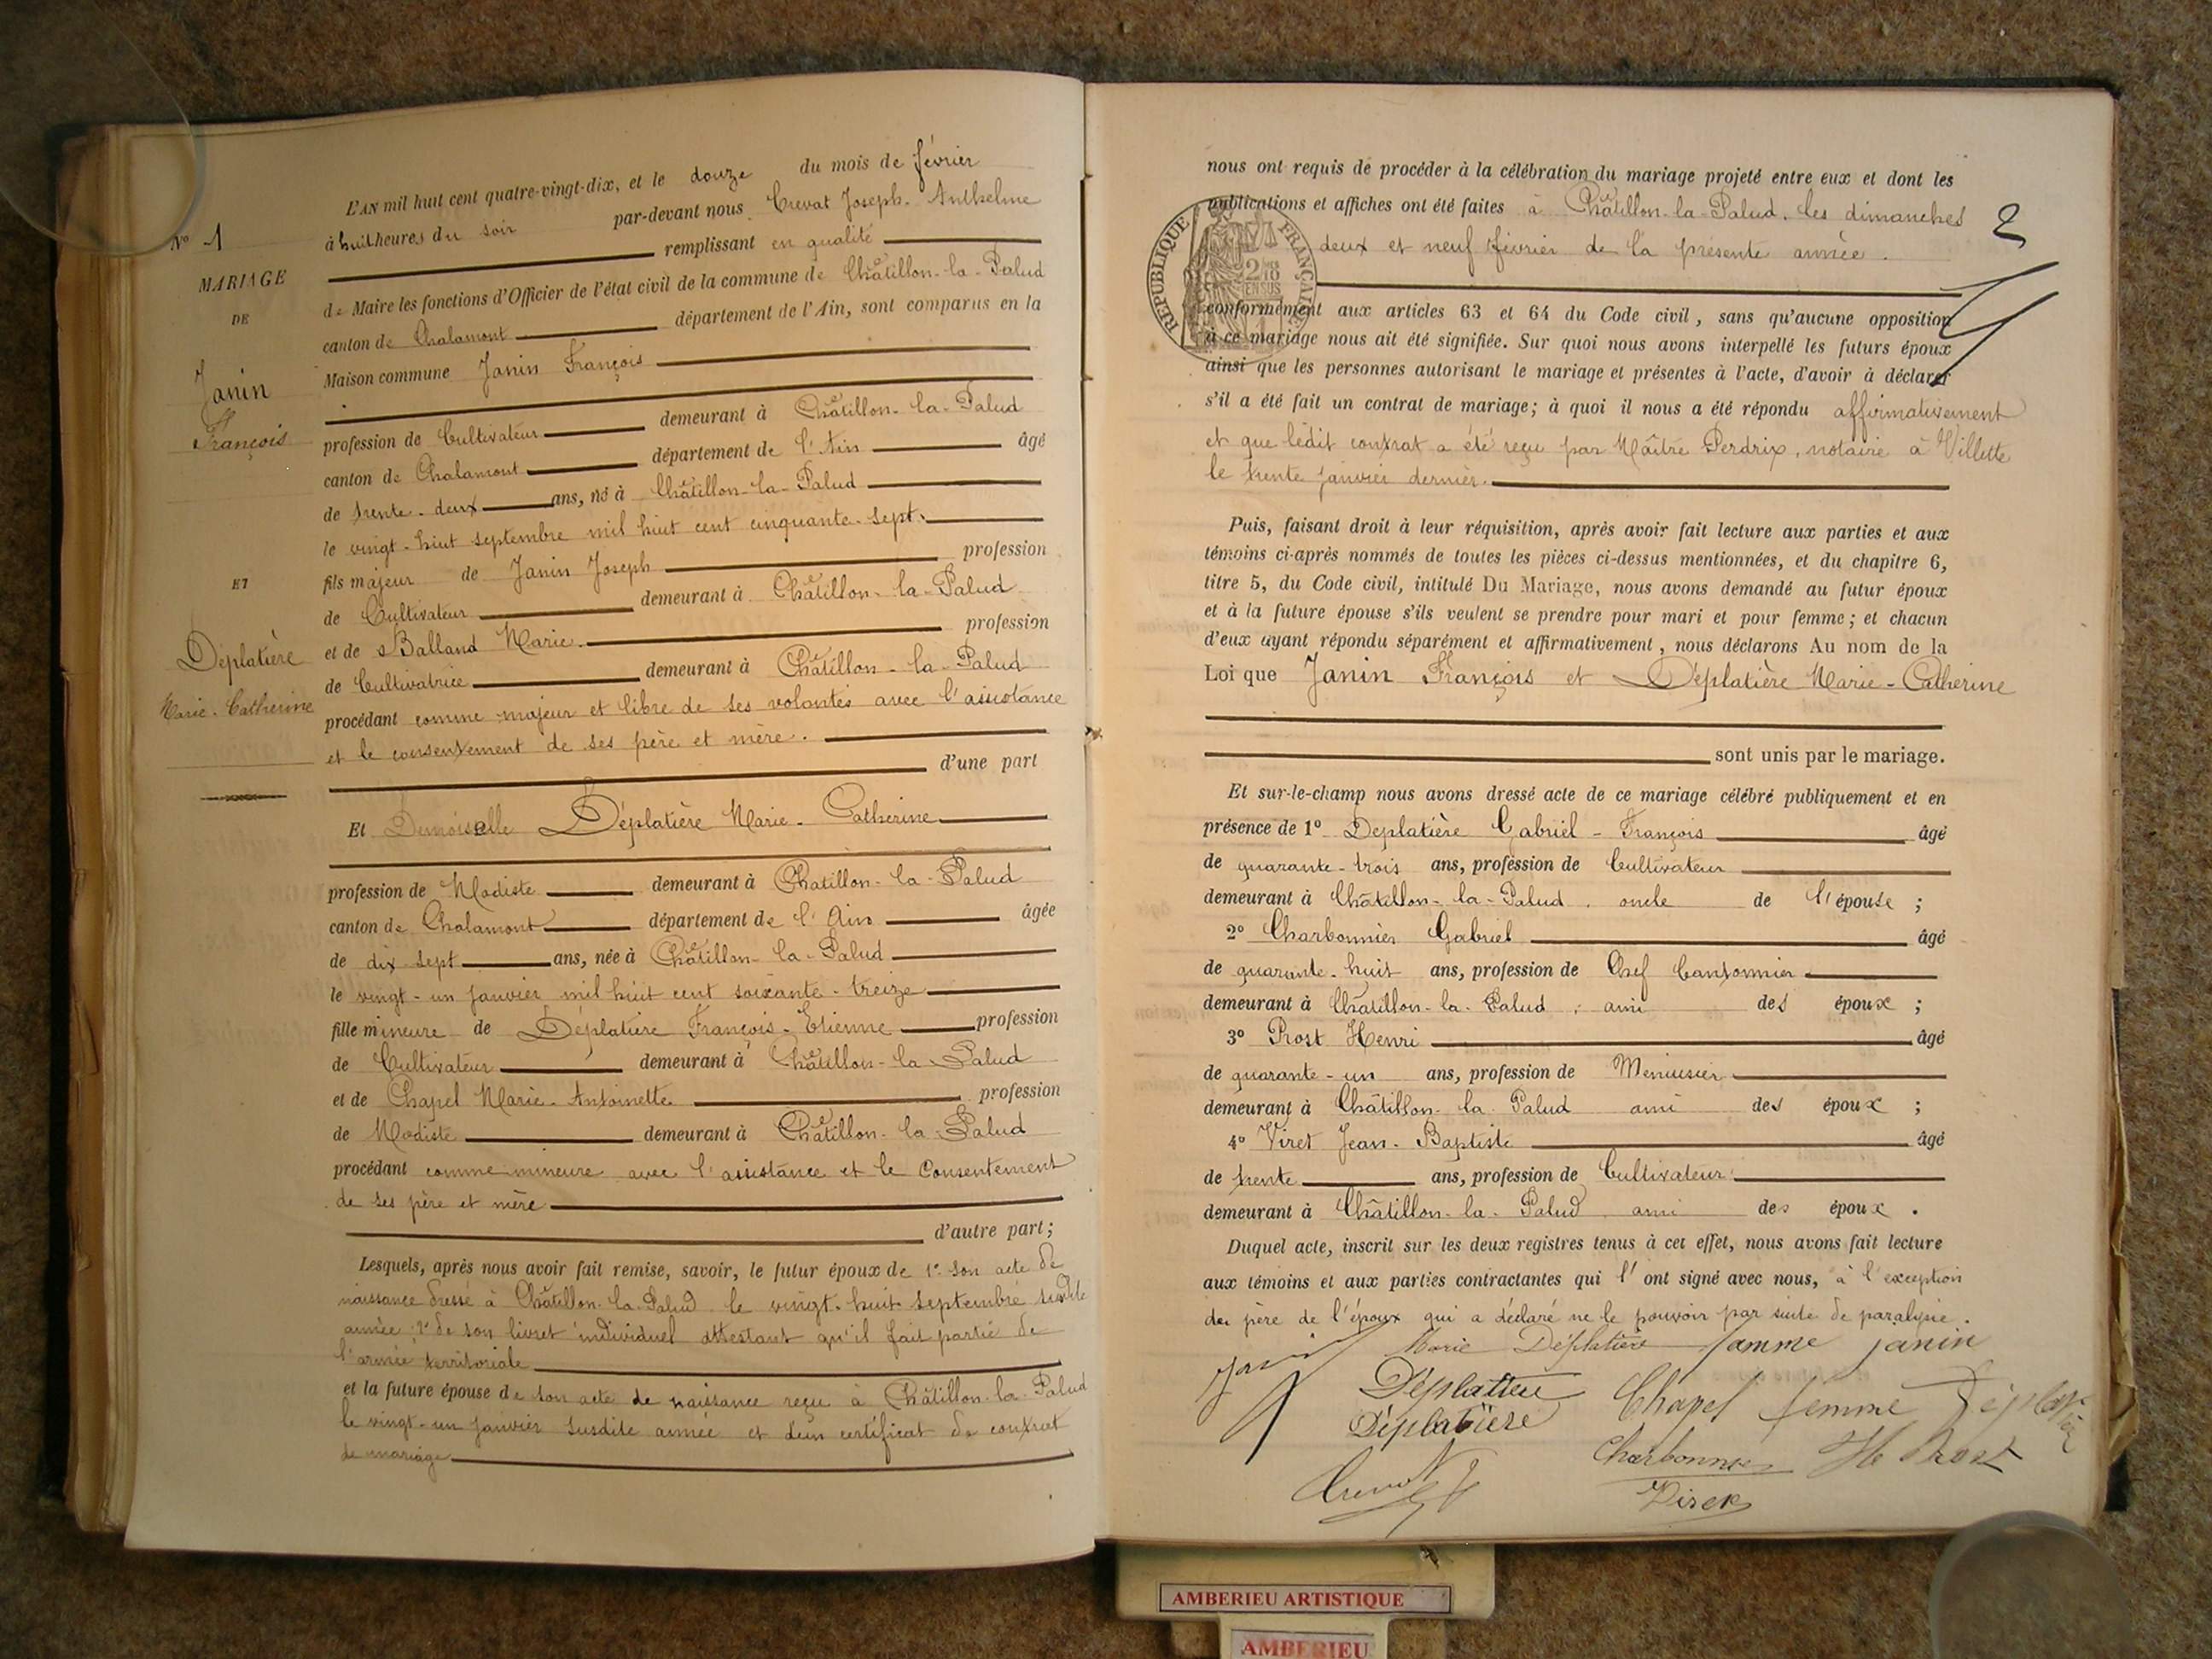 L'AN mil huit cent quatre-vingt-dix, et le douze du mois de février
à huit heures du soir par-devant nous Crevat Joseph-Anthelme
remplissant en qualité
de Maire les fonctions d'Officier de l'état civil de la commune de Châtillon-la-Palud
canton de Chalamont département de l'Ain, sont comparus en la
Maison commune Janin François
profession de Cultivateur demeurant à Châtillon-la-Palud
canton de Chalamont département de l'Ain âgé
de trente-deux ans, né à Châtillon-la-Palud
le vingt-huit septembre mil huit cent cinquante-sept.
fils majeur de Janin Joseph profession
de Cultivateur demeurant à Châtillon-la-Palud
et de Balland Marie profession
de Cultivatrice demeurant à Châtillon-la-Palud
procédant comme majeur et libre de ses volontés avec l'assistance
et le consentement de ses père et mère.
d'une part
Et Demoiselle Déplatière Marie-Catherine
profession de Modiste demeurant à Chatillon-la-Palud
canton de Chalamont département de l'Ain âgée
de dix sept ans, née à Châtillon-la-Palud
le vingt-un janvier mil huit cent soixante-treize
fille mineure de Déplatière François-Etienne profession
de Cultivateur demeurant à Châtillon-la-Palud
et de Chapel Marie-Antoinette profession
de Modiste demeurant à Châtillon-la-Palud
procédant comme mineure avec l'assistance et le Consentement
de ses père et mère
d'autre part;
Lesquels, après nous avoir fait remise, savoir, le futur époux de 1° son acte de
naissance dressé à Châtillon-la-Palud le vingt-huit septembre susdite
année 2° de son livret individuel attestant qu'il fait partie de
l'armée territoriale
et la future épouse de son acte de naissance reçu à Châtillon-la-Palud
le vingt-un janvier susdite année et d'un certificat de contrat
de mariage
N° 1
MARIAGE
DE
Janin
François
ET
Déplatière
Marie-Catherine
nous ont requis de procéder à la célébration du mariage projeté entre eux et dont les
publications et affiches ont été faites à Châtillon-la-Palud, les dimanches
deux et neuf février de la présente année.
conformément aux articles 63 et 64 du Code civil, sans qu'aucune opposition
à ce mariage nous ait été signifiée. Sur quoi nous avons interpellé les futurs époux
ainsi que les personnes autorisant le mariage et présentes à l'acte, d'avoir à déclarer
s'il a été fait un contrat de mariage; à quoi il nous a été répondu affirmativement
et que ledit contrat a été reçu par Maître Perdrix, notaire à Villette
le trente janvier dernier.
Puis, faisant droit à leur réquisition, après avoir fait lecture aux parties et aux
témoins ci-après nommés de toutes les pièces ci-dessus mentionnées, et du chapitre 6,
titre 5, du Code civil, intitulé Du Mariage, nous avons demandé au futur époux
et à la future épouse s'ils veulent se prendre pour mari et pour femme; et chacun
d'eux ayant répondu séparément et affirmativement, nous déclarons Au nom de la
Loi que Janin François et Déplatière Marie-Catherine
sont unis par le mariage.
Et sur-le-champ nous avons dressé acte de ce mariage célébré publiquement et en
présence de 1° Deplatière Gabriel-François âgé
de quarante-trois ans, profession de Cultivateur
demeurant à Châtillon-la-Palud. oncle de l'épouse;
2° Charbonnier Gabriel âgé
de quarante-huit ans, profession de Chef Cantonnier
demeurant à Châtillon-la-Palud; ami des époux;
3° Prost Henri âgé
de quarante-un ans, profession de Menuisier
demeurant à Châtillon-la-Palud ami des époux;
4° Viret Jean-Baptiste âgé
de trente ans, profession de Cultivateur
demeurant à Châtillon-la-Palud ami des époux.
Duquel acte, inscrit sur les deux registres tenus à cet effet, nous avons fait lecture
aux témoins et aux parties contractantes qui l'ont signé avec nous, à l'exception
du père de l'époux qui a déclaré ne le pouvoir par suite de paralysie.
Janin Marie Déplatière famme janin
Déplatière Chapel femme Déplatière
Déplatière
Charbonnier H Prost
Crevat Viret
2
RÉPUBLIQUE FRANÇAISE
2/10 EN SUS
AMBERIEU ARTISTIQUE
AMBERIEU